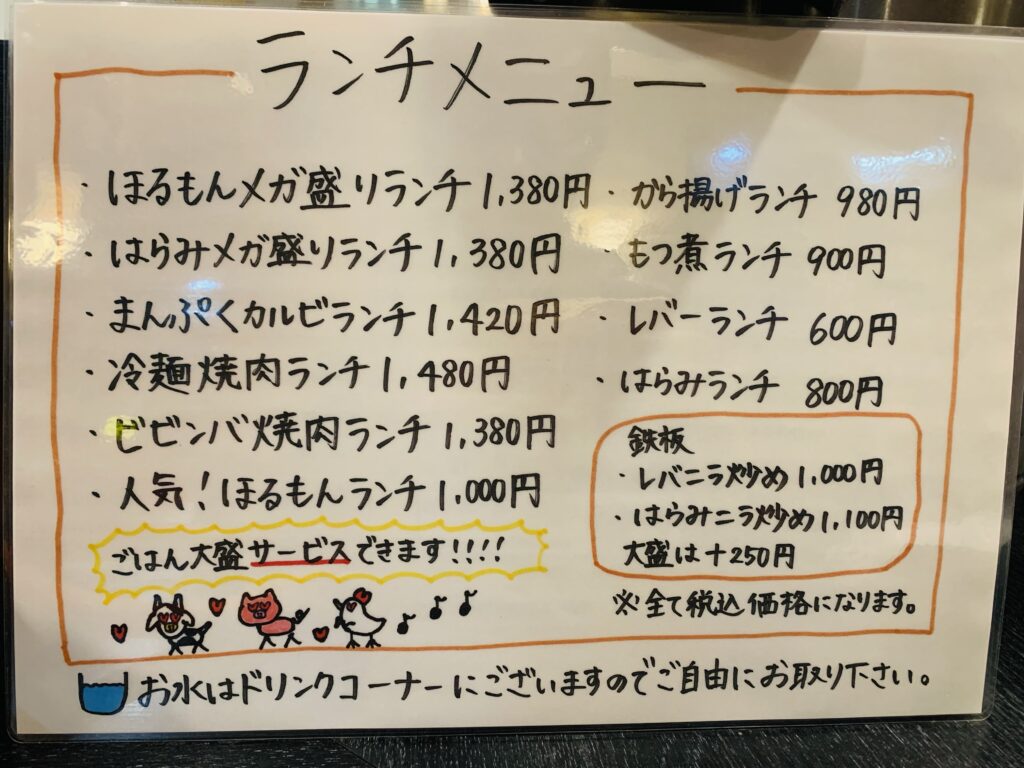 ランチメニュー
・ほるもんメガ盛りランチ 1,380円
・はらみメガ盛りランチ 1,380円
・まんぷくカルビランチ 1,420円
・冷麺焼肉ランチ 1,480円
・ビビンバ焼肉ランチ 1,380円
・人気!ほるもんランチ 1,000円
ごはん大盛サービスできます!!!!
・から揚げランチ 980円
・もつ煮ランチ 900円
・レバーランチ 600円
・はらみランチ 800円
鉄板
・レバニラ炒め 1,000円
・はらみニラ炒め 1,100円
大盛は+250円
※全て税込価格になります。
お水はドリンクコーナーにございますのでご自由にお取り下さい。